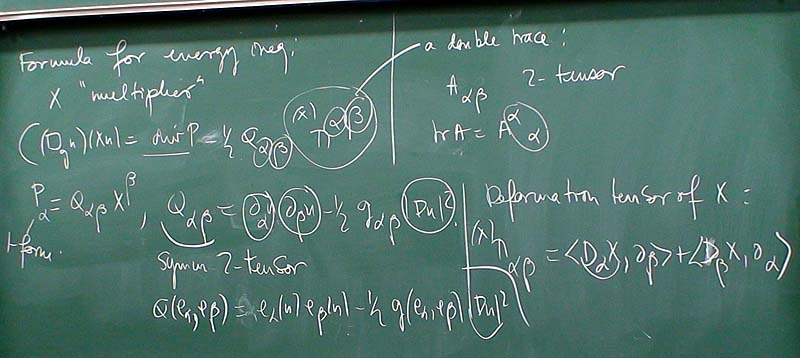 Formula for energy ineq:
X "multiplier"
((□_g u)(Xu) = div P - ½ Q_αβ ^(X)π^αβ
P_α = Q_αβ X^β, Q_αβ = ∂_αu ∂_βu - ½ g_αβ |Du|².
1-form.
symm 2-tensor
Q(e_α, e_β) = e_α(u) e_β(u) - ½ g(e_α, e_β) |Du|²
a double trace:
A_αβ 2-tensor
trA = A^α_α
Deformation tensor of X:
^(X)π_αβ = <D_αX, ∂_β> + <D_βX, ∂_α>